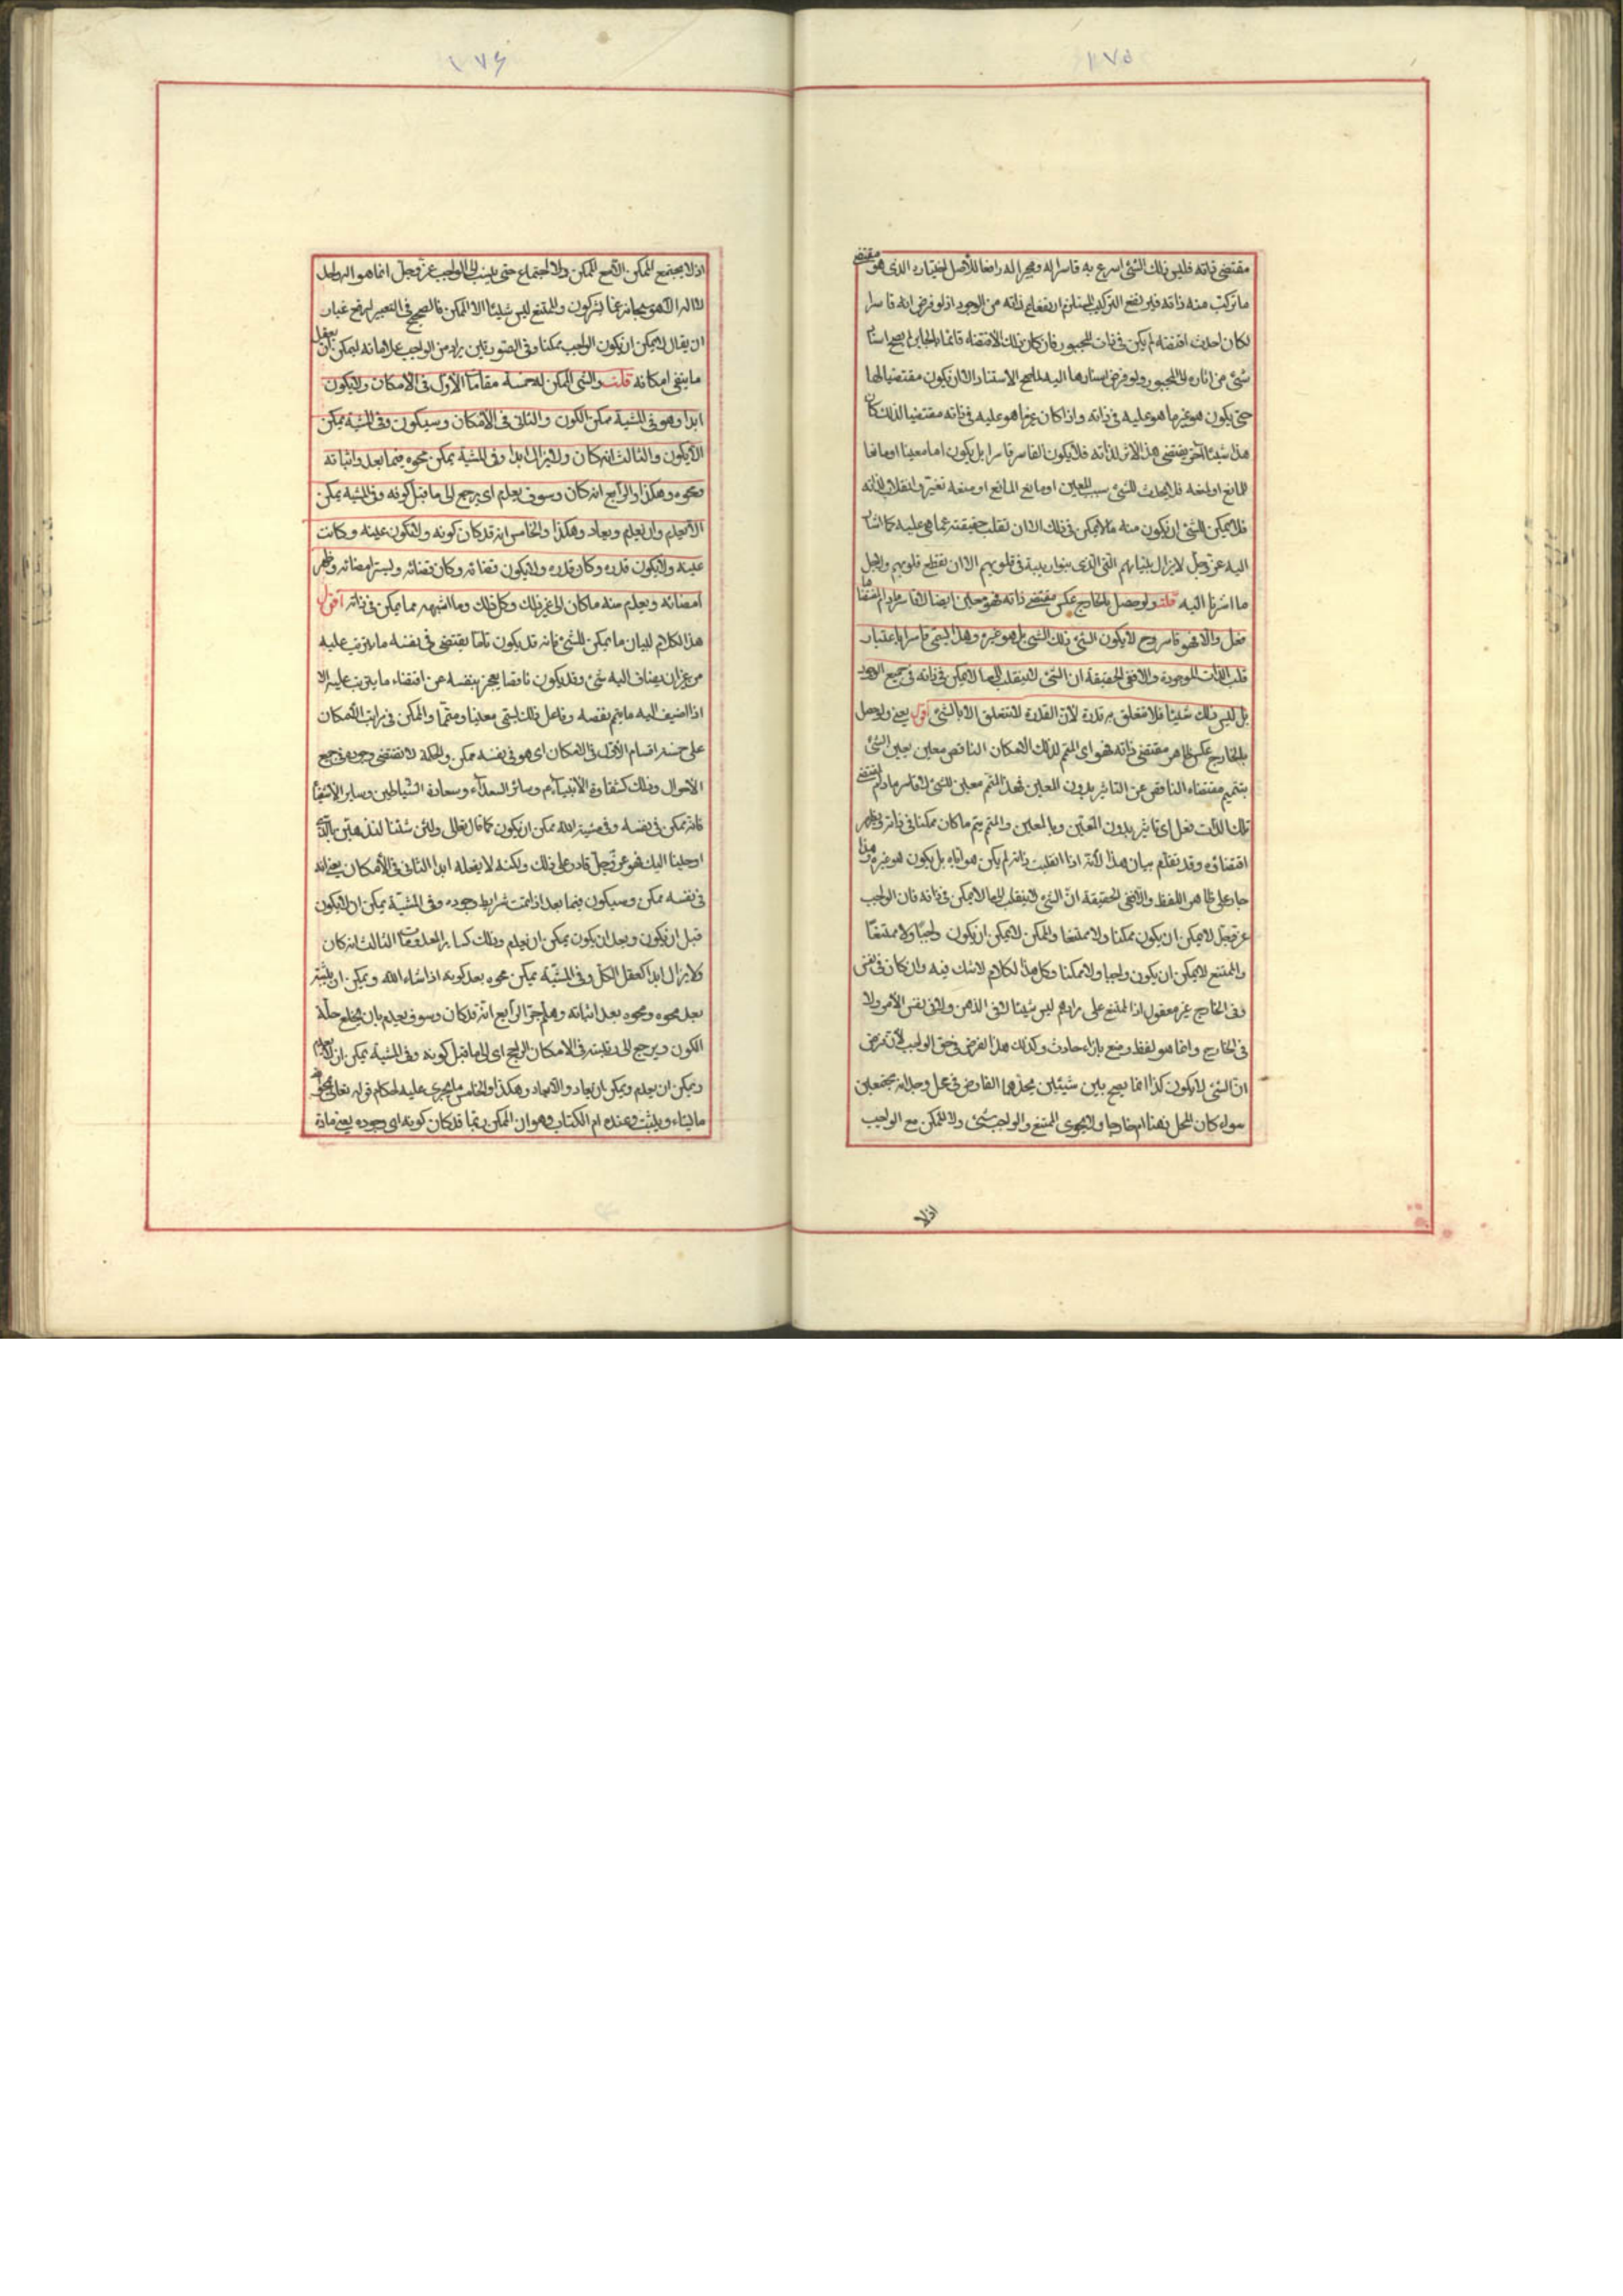 ١٧٥
مقتضى ذاته فليس ذلك الشئ اسرع به قاسرا له ومجبرا له رافعا لاصل اختياره الذى هو مقتضى
ما تركب منه ذاته فيرتفع التركيب المستلزم لارتفاع ذاته من الوجود اذ لو فرض انه قاسرا
لكان احدث اقتضاء لم يكن فى ذات المجبور فان كان ذلك الاقتضاء قائما بالجابر لم يصح اسناد
شئ من اثاره الى المجبور ولو فرض اسنادها اليه لم يصح الاسناد الا ان يكون مقتضيا لها
حتى يكون هو غير ما هو عليه فى ذاته واذا كان غير ما هو عليه فى ذاته مقتضيا لذلك كان
هذا شيئا آخر يقتضى هذا الاثر لذاته فلا يكون القاسر قاسرا بل يكون اما معينا او مانعا
للمانع
فلا يمكن للشئ ان يكون منه ما لا يمكن فى ذلك الا ان تقلب حقيقته عما هى عليه كما اشار
اليه عز وجل لا يزال بنيانهم الذى بنوا ريبة فى قلوبهم الا ان تقطع قلوبهم ولاجل
ما اشرنا اليه قلت ولو حصل بالخارج عكس مقتضى ذاته فهو معين ايضا لا قاسر ما دام اقتضا
فعل والا فهو قاسر وح لا يكون الشئ ذلك الشئ بل هو غيره وهذا يسمى قاسرا باعتبار
قلب الذات الموجودة والا ففى الحقيقة ان الشئ لا ينقلب الى ما لا يمكن فى ذاته فى جميع الوجود
بل ليس ذلك شيئا فلا تتعلق به قدرة لان القدرة لا تتعلق الا بالشئ اقول يعنى ولو حصل
بالخارج عكس ظاهر مقتضى ذاته فهو اى المتمم لذلك الامكان الناقص معين يعين الشئ
بتتميم مقتضاه الناقص عن التاثير بدون المعين فهذا المتمم معين للشئ لا قاسر ما دام لمقتضى
تلك الذات فعل اى تاثير بدون المعين وبالمعين والمتمم يتم ما كان ممكنا فى ذاته فيظهر
اقتضاؤه وقد تقدم بيان هذا لانه اذا انقلبت ذاته لم يكن هو اياه بل يكون هو غيره وهذا
جار على ظاهر اللفظ والا ففى الحقيقة ان الشئ لا ينقلب الى ما لا يمكن فى ذاته فان الواجب
عز وجل لا يمكن ان يكون ممكنا ولا ممتنعا والممكن لا يمكن ان يكون واجبا ولا ممتنعا
والممتنع لا يمكن ان يكون واجبا ولا ممكنا وكل هذا الكلام لا شك فيه وان كان فى نفس
وفى الخارج غير معقول اذ الممتنع على رايهم ليس شيئا لا فى الذهن ولا فى نفس الامر ولا
فى الخارج وانما هو لفظ وضع بازاء حادث وكذلك هذا الفرض فى حق الواجب لان فرض
ان الشئ لا يكون كذا انما يصح بين شيئين يحدهما الفارض فى محل وجدانه مجتمعين
سواء كان المحل ذهنا ام خارجا ولا يحوى الممتنع والواجب شئ ولا الممكن مع الواجب
اذ لا
١٧۶
اذ لا يجتمع الممكن الا مع الممكن والاجتماع حتى ينسب الى الواجب عز وجل انما هو اله واحد
لا اله الا هو سبحانه عما يشركون والممتنع ليس شيئا الا الممكن فالصحيح فى التعبير لرفع غبار
ان يقال لا يمكن ان يكون الواجب ممكنا وفى الصورتين يراد من الواجب علاماته ليمكن ان يعقل
ما ينفى امكانه قلت والشئ الممكن له خمسة مقامات الاول فى الامكان ولا يكون
ابدا وهو فى المشية ممكن الكون والثانى فى الامكان وسيكون وفى المشية يمكن
الا يكون والثالث انه كان ولا يزال ابدا وفى المشية يمكن محوه فيما بعد واثباته
ومحوه وهكذا والرابع انه كان وسوف يعدم اى يرجع الى ما قبل كونه وفى المشية يمكن
الا يعدم وان يعدم ويعاد وهكذا والخامس انه قد كان كونه ولا تكون عينه وكانت
عينه ولا يكون قدره وكان قدره ولا يكون قضائه وكان قضائه ويستر امضائه وظهر
امضائه ويعدم منه ما كان الى غير ذلك وكل ذلك وما اشبهه مما يمكن فى ذاته اقول
هذا الكلام لبيان ما يمكن للشئ فانه قد يكون تاما يقتضى فى نفسه ما يترتب عليه
من غير ان يضاف اليه شئ وقد يكون ناقصا يعجز بنفسه عن اقتضاء ما يترتب عليه الا
اذا اضيف اليه ما يتم نقصه وفاعل ذلك يسمى معينا ومتمما والممكن فى مراتب الامكان
على خمسة اقسام الاول فى الامكان اى هو فى نفسه ممكن والحكمة لا تقتضى وجوده فى جميع
الاحوال وذلك كشقاوة الانبياء ع م وسائر السعداء وسعادة الشياطين وساير الاشقيا
فانه ممكن فى نفسه وفى مشية الله ممكن ان يكون كما قال تعالى ولئن شئنا لنذهبن بالذى
اوحينا اليك فهو عز وجل قادر على ذلك ولكنه لا يفعله ابدا الثانى فى الامكان يعنى انه
فى نفسه ممكن وسيكون فيما بعد اذا تمت شرايط وجوده وفى المشية يمكن ان لا يكون
قبل ان يكون وبعد ان يكون يمكن ان يعدم وذلك كساير المعدومات الثالث انه كان
ولا يزال ابدا كعقل الكل وفى المشية يمكن محوه بعد كونه اذا شاء الله ويمكن ان يثبته
بعد محوه ومحوه بعد اثباته وهلم جرا الرابع انه قد كان وسوف يعدم بان يخلع حلة
الكون ويرجع الى رتبته فى الامكان الراجح اى الى ما قبل كونه وفى المشية يمكن ان لا يعدم
ويمكن ان يعدم ويمكن ان يعاد والا يعاد وهكذا والخامس ما يجرى عليه احكام قوله تعالى يمحو الله
ما يشاء ويثبت وعنده ام الكتاب وهو ان الممكن ربما قد كان كونه اى وجوده يعنى مادة